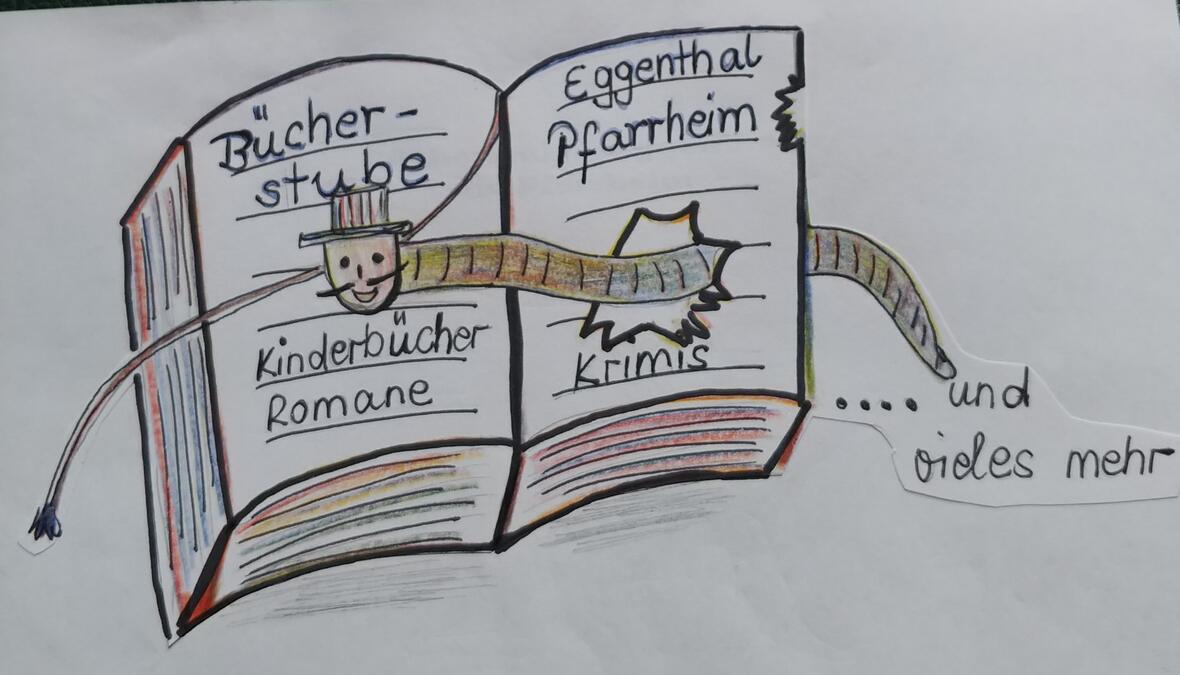 Bücher-
stube
Kinderbücher
Romane
Eggenthal
Pfarrheim
Krimis
.... und
vieles mehr